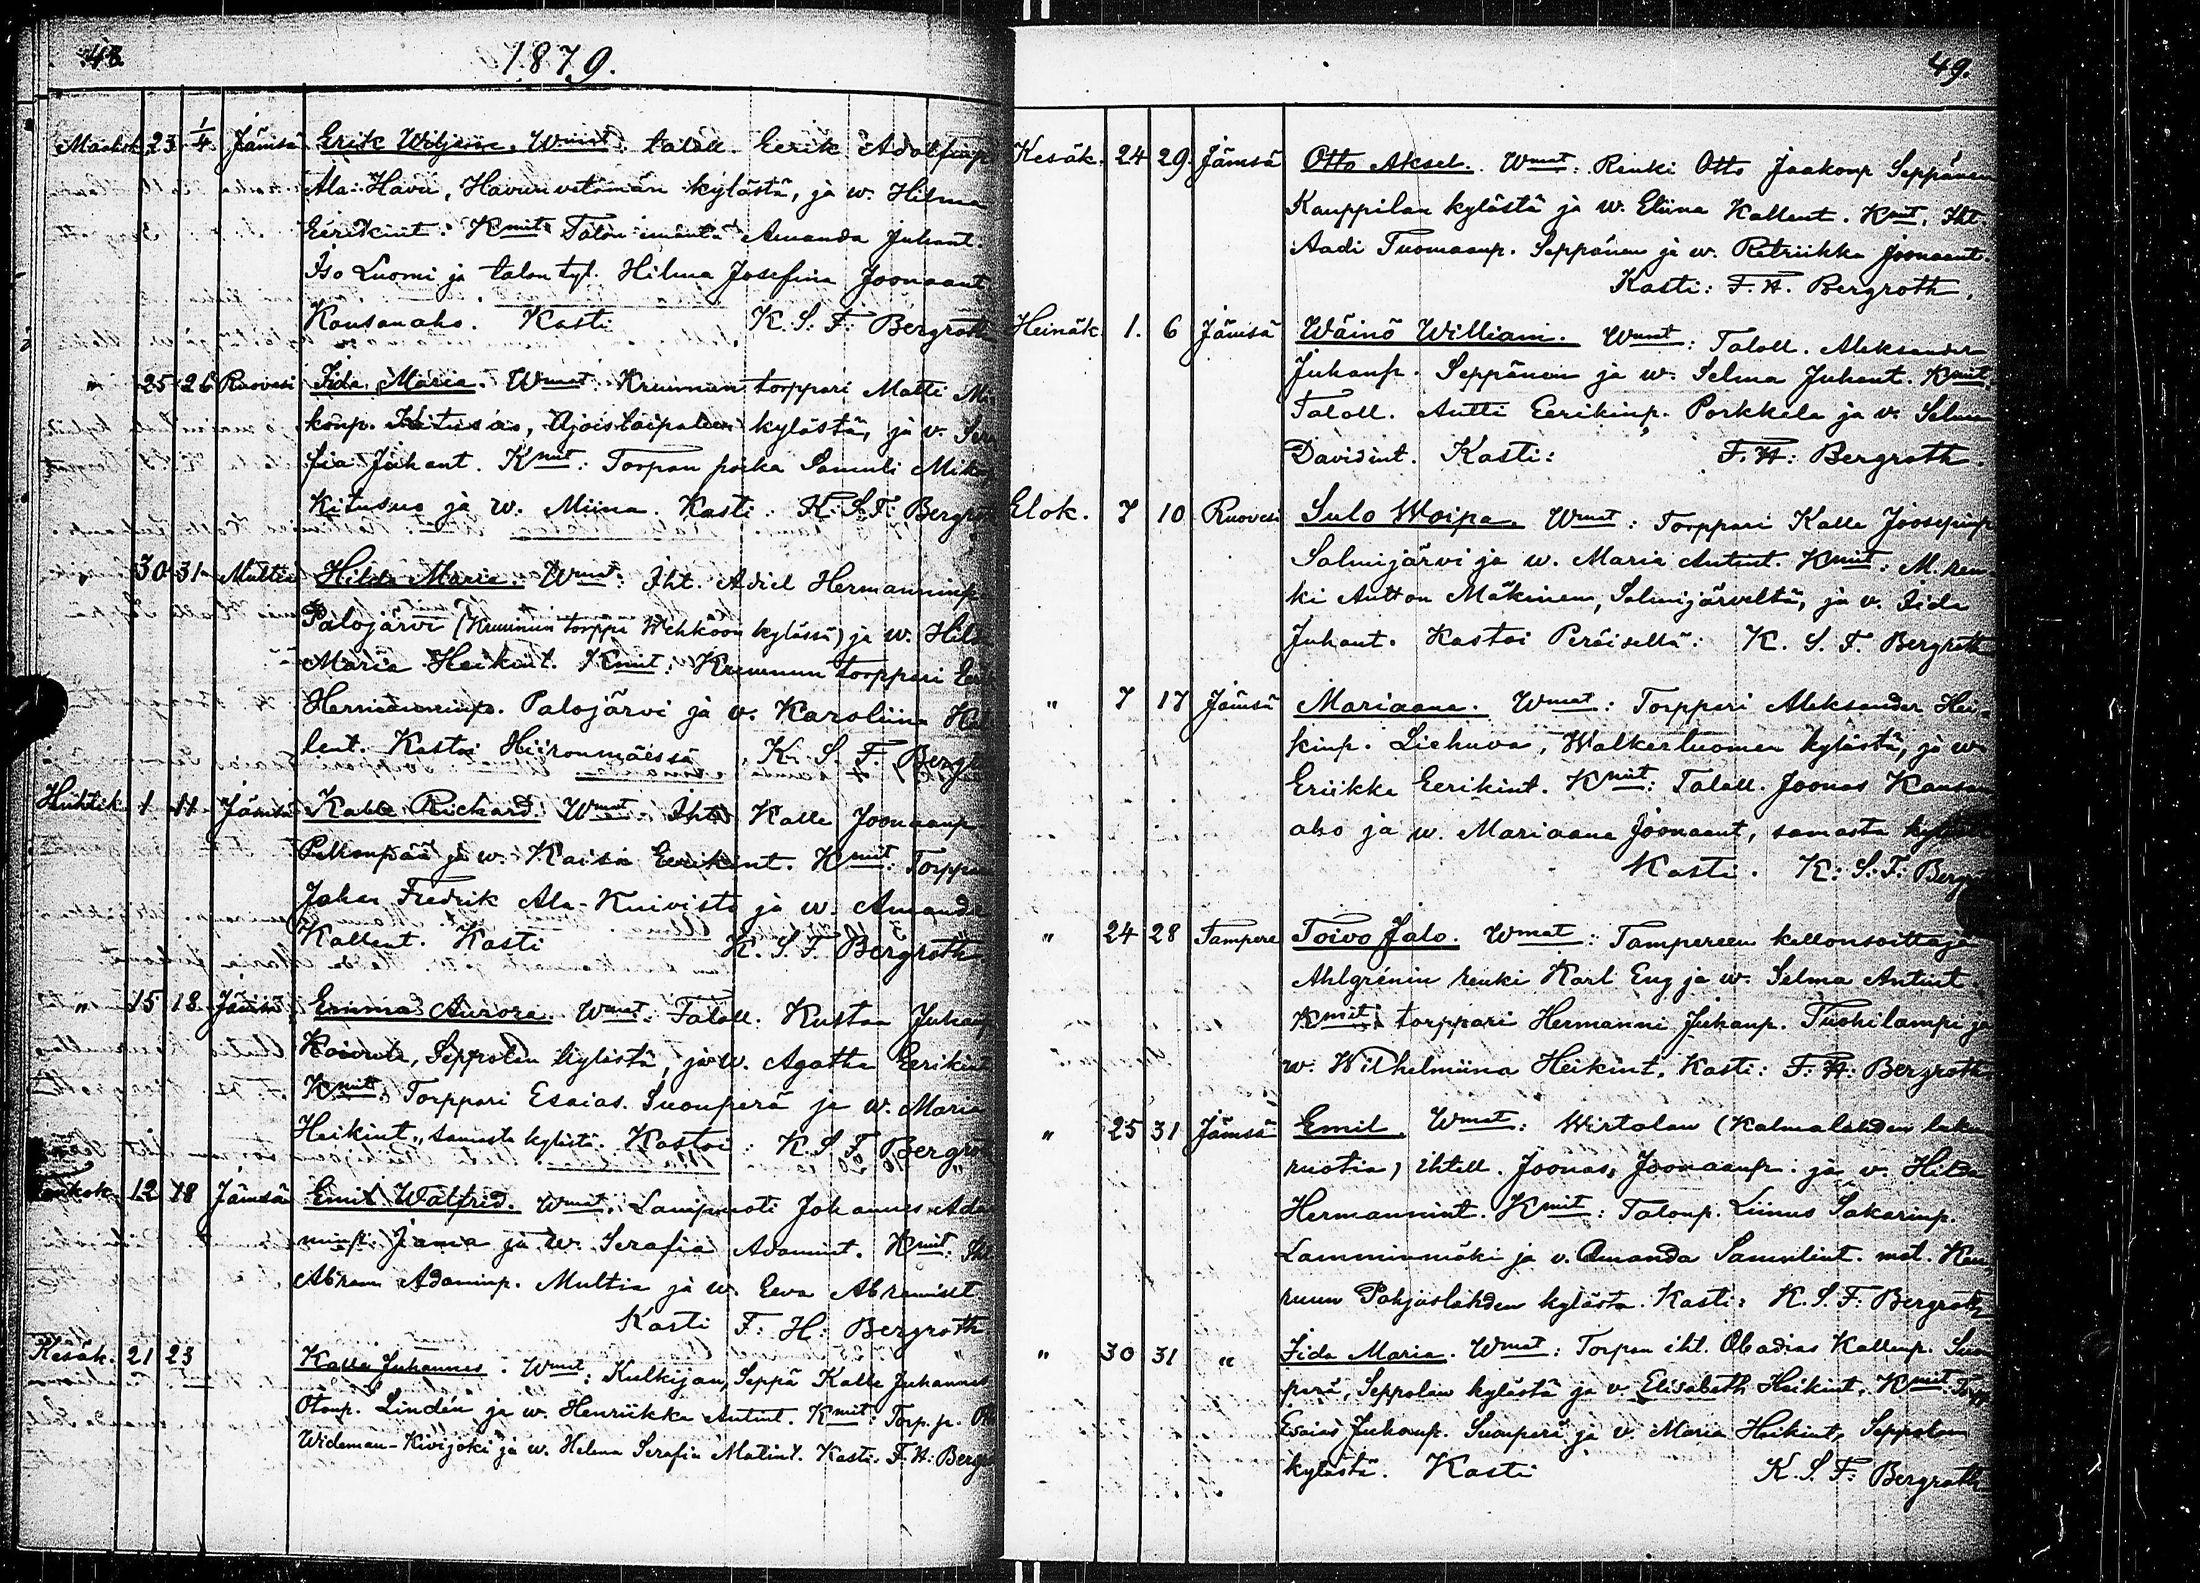 48.
1879.
Maalisk. 23 1/4 Jämsä Erik Wiljam. Wmat: talall. Eerik Adolfinp.
Ala-Havu, Havunvetämän kylästä, ja w. Hilma
Eerikint. Kmit: Talon imäntä Amanda Juhant.
Iso Luomi ja talon tyt. Hilma Josefina Joonaant.
Kansanaho. Kasti K. S. F. Bergroth
" 25 26 Ruovesi Iida Maria. Wmat: Kruunun torppari Matti Mi-
konp. Kitusuo, kylästä, ja v. Sera
fia Juhant. Kmit: Torpan poika Samuli Mikonp.
Kitusuo ja w. Miina. Kasti: K. S. F. Bergroth
" 30 31 Multia Hilda Maria. Wmat: Iht. Adiel Hermanninp.
Palojärvi (Kruunun torppa Wehkoon kylässä) ja w. Hilda
Maria Heikint. Kmit: Kruunun torppari Eerik
Hermanninp. Palojärvi ja v. Karoliina Kal-
lent. Kastoi Hiironmäessä K. S. F. Bergroth
Huhtik. 1 11 Jämsä Kalle Rickard. Wmat: Iht. Kalle Joonaanp.
ja w. Kaisa Eerikint. Kmit: Torppari
Fredrik Ala-Kuivisto ja w. Amanda
Kallent. Kasti K. S. F. Bergroth
" 15 18 Jämsä Emma Aurora. Wmat: Talall. Kustaa Juhanp.
Koivula, Seppolan kylästä, ja w. Agatha Eerikint.
Kmit: Torppari Esaias Suonperä ja w. Maria
Heikint., samasta kylästä. Kastoi: K. S. F. Bergroth
Toukok. 12 18 Jämsä Emil Walfrid. Wmat: Johannes Ada-
minp. ja w. Serafia Adamint. Kmit: Iht
Abram Adaminp. Multia ja w. Eeva Abramint
Kasti F. H. Bergroth
Kesäk. 21 23 Kalle Juhannes. Wmat: Kulkijan, Seppä Kalle Juhannes
Otonp. Lindén ja w. Henriikka Antint. Kmit: Torp. p. Otto
Wideman-Kivijoki ja w. Helena Serafia Matint. Kasti. F. H. Bergroth
49.
Kesäk. 24 29 Jämsä Otto Aksel. Wmat: Renki Otto Jaakonp Seppänen
Kauppilan kylästä ja w. Eliina Kallent. Kmit. Iht
Aadi Tuomaanp. Seppänen ja w. Retriikka Joonaant.
Kasti: F. H. Bergroth.
Heinäk. 1. 6 Jämsä Wäinö William. Wmat: Talall. Aleksander
Juhanp. Seppänen ja w. Selma Juhant. Kmit
Talall. Antti Eerikinp. Porkkala ja v. Selma
Davidint. Kasti: F. H: Bergroth.
Elok. 7 10 Ruovesi Sulo Woipa. Wmat: Torppari Kalle Joosepinp
Salmijärvi ja w. Maria Antint. Kmit: M. ren-
ki Antton Mäkinen, Salmijärveltä, ja v. Iida
Juhant. Kastoi Peräisellä: K. S. F. Bergroth
" 7 17 Jämsä Mariaana. Wmat: Torppari Aleksander Hei-
kinp. Liehuva, Walkerluomen kylästä, ja w
Eriikka Eerikint. Kmit: Talall. Joonas Kansan
aho ja w. Mariaana Joonaant, samasta kylästä
Kasti. K: S: F: Bergroth
" 24 28 Tampere Toivo Jalo. Wmat: Tampereen kellonsoittaja
Ahlgrénin renki Karl Eng ja w. Selma Antint.
Kmit: torppari Hermanni Juhanp. Tuohilampi ja
w. Wilhelmiina Heikint. Kasti: F. H: Bergroth
" 25 31 Jämsä Emil. Wmat: Wirtolan (Kalmalahden luku
ruotia) ihtell. Joonas Joonaanp. ja v. Hilda
Hermannint. Kmit: Talonp. Liinus Sakarinp.
Lamminmäki ja v. Amanda Samulint. mol. Keu-
ruun Pohjoslahden kylästä. Kasti: K. S. F: Bergroth
" 30 31 " Iida Maria. Wmat: Torpan iht. Obadias Kallenp. Suon
perä, Seppolan kylästä ja v. Elisabeth Heikint. Kmit Torpp
Esaias Juhanp. Suonperä ja v. Maria Heikint, Seppolan
kylästä. Kasti K. S. F: Bergroth